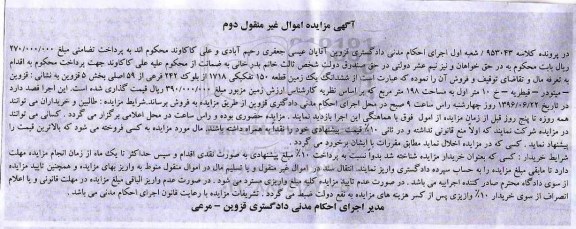 آگهی مزایده اموال غیر منقول دوم
در پرونده کلاسه ۹۵۳۰۴۳ / شعبه اول اجرای احکام مدنی دادگستری قزوین آقایان عیسی جعفری رحیم آبادی و علی کاکاوند محکوم اند به پرداخت تضامنی مبلغ ۲۷۰/۰۰۰/۰۰۰
ریال بابت محکوم به در حق خواهان و نیز نیم عشر دولتی در حق صندوق دولت شخص ثالث خانم بدر خانی به ضمانت از محکوم علیه علی کاکاوند جهت پرداخت محکوم به اقدام
به تعرفه مال و تقاضای توقیف و فروش آن را نموده که عبارت است از ششدانگ یک زمین قطعه ۱۵۰ تفکیکی ۱۷۱۸ از بلوک ۲۴۲ فرعی از ۵۹ اصلی بخش ۵ قزوین به نشانی : قزوین
– مینودر – قیطریه – خ ۱۰ متر اول به مساحت ۱۹۸ متر مربع که بر اساس نظریه کارشناس ارزش زمین مزبور مبلغ ۳۹۰/۰۰۰/۰۰۰ ریال قیمت گذاری شده است. این اجرا قصد دارد
در تاریخ ۱۳۹۶/۰۶/۲۲ روز چهارشنبه راس ساعت ۹ صبح در محل اجرای احکام مدنی دادگستری قزوین از طریق مزایده به فروش برساند.شرایط مزایده : طالبین و خریداران می توانند
همه روزه تا پنج روز قبل از زمان مزایده از اموال فوق با هماهنگی این اجرا بازدید نمایند . مزایده حضوری بوده و راس ساعت در محل اعلامی برگزار می گردد . کسانی می توانند
در مزایده شرکت نمایند که اولاً منع قانونی نداشته و در ثانی ۱۰٪ قیمت پیشنهادی خود را نقدا به همراه داشته باشند. مال مورد مزایده به کسی فروخته می شود که بالاترین قیمت را
پیشنهاد نمایند . کسی که در مزایده اخلال نماید مطابق مقررات با ایشان برخورد می گردد .
شرایط خریدار : کسی که بعنوان خریدار مزایده شناخته شد بدواً نسبت به پرداخت ۱۰٪ مبلغ پیشنهادی به صورت نقدی اقدام و سپس حداکثر تا یک ماه از زمان انجام مزایده مهلت
دارد تا مابقی مبلغ مزایده را به حساب سپرده دادگستری واریز نمایند. انتقال سند در اموال غیر منقول و یا تسلیم مال در اموال منقول منوط به واریز بهای مزایده و همچنین تایید مزایده
از سوی دادگاه محترم صادر کننده اجراییه می باشد . در صورت عدم تایید مزایده کلیه مبلغ واریزی مسترد می شود . در صورت عدم واریز الباقی مبلغ مزایده در مهلت قانونی و یا اعلام
انصراف از سوی خریدار ۱۰٪ واریزی پس از کسر هزینه های مزایده به نفع دولت ضبط می گردد . تشریفات مزایده با رعایت قانون اجرای احکام مدنی می باشد .
مدیر اجرای احکام مدنی دادگستری قزوین – مرعی